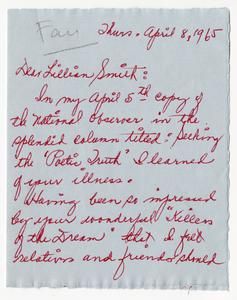 Fan
Thurs. April 8, 1965
Dear Lillian Smith:
In my April 5th copy of
the National Observer in the
splendid column titled: Seeking
the "Poetic Truth" I learned
of your illness.
Having been so impressed
by your wonderful "Killers
of the Dream" that I felt
relations and friends should